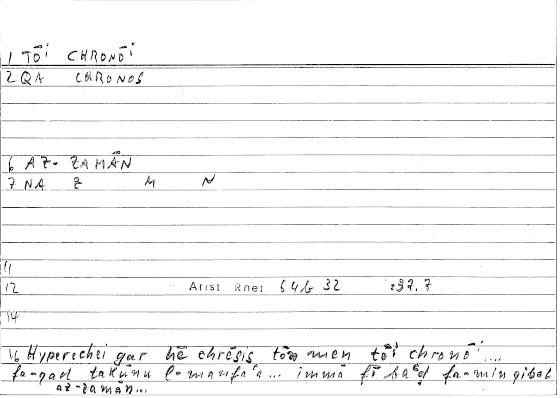 1 TŌI CHRONŌI
2 QA CHRONOS
6 AZ-ZAMĀN
7 NA Z M N
11
12 Arist Rhet 64b 32 297.7
14
16 Hyperechei gar hē chrēsis tōn men tōi chronōi....
fa-qad takūnu l-manfaʿa... immā fī baʿḍ fa-min qibal
az-zamān...